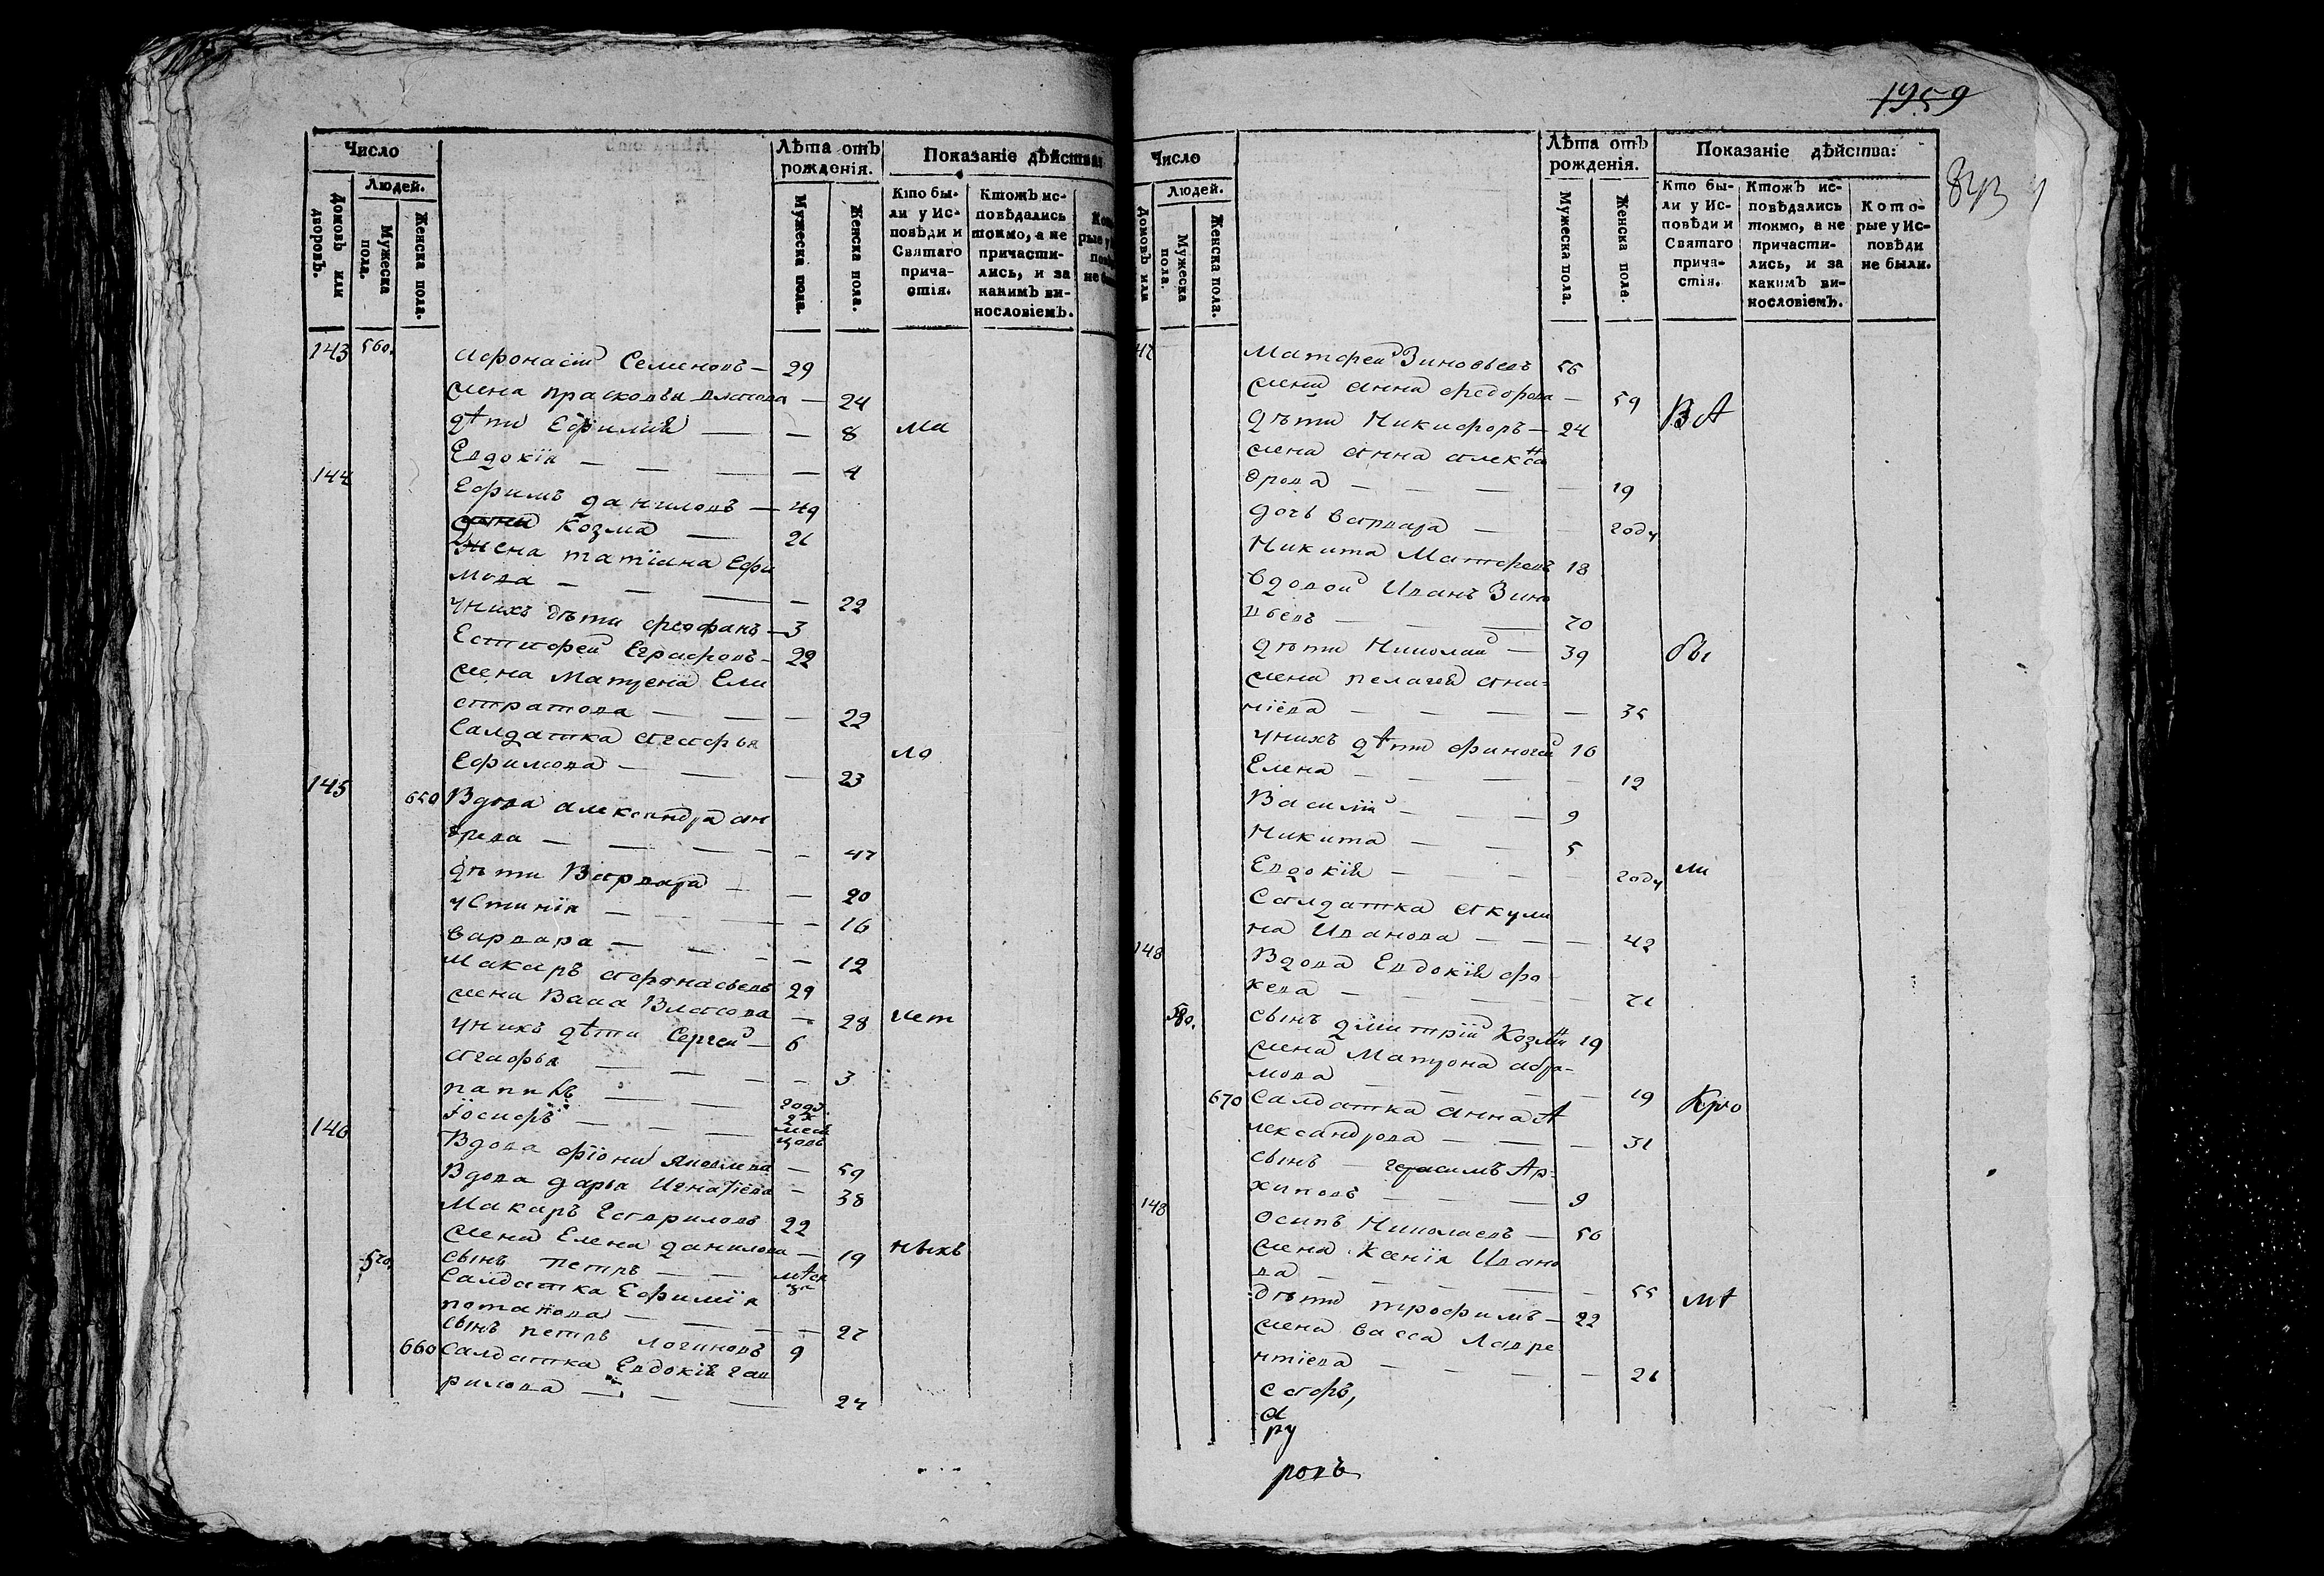 Число
Людей.
Домовъ или дворовъ.
Мужеска пола.
Женска пола.
Лѣта отъ рожденія.
Мужеска пола.
Женска пола.
Показаніе дѣйства:
Кто бы-
ли у Ис-
повѣди и
Святаго
прича-
стія.
Ктожъ ис-
повѣдались
токмо, а не
причасти-
лись, и за
какимъ ви-
нословіемъ.
143 560. Афонасій Семеновъ — 29
жена прасковья власова — 24
дѣти Ефимія — — 8 ма
Евдокія — — — — 4
144
Ефимъ даниловъ — 49
Козма — 21
жена татіана Ефи
мова — — — 22
унихъ дѣти феофанъ — 3
Естифей Еграфовъ — 22
жена Матрена Ели
стратова — — — 22
Салдатка Агафья ло
Ефимова — — — 23
145 650 Вдова александра ан
дреева — — — — 47
дѣти Варвара — — 20
устинія — — — 16
варвара — — — 12
Макаръ афонасьевъ 29
жена Васа Власова — 28 лет
унихъ дѣти Сергей — 6
агафья — — — 3
Іосифъ — — —
146
Вдова фіона Яковлева — 59
Вдова дарья Игнатіева — 38
Макаръ Гавриловъ 22
жена Елена данилова — 19 нихъ
570. сынъ петръ — —
Салдатка Ефимія
потапова — — — 27
сынъ петръ логиновъ 9
660 Салдатка Евдокія гав
рилова — — — 24
1959
Число
Людей.
Домовъ или
Мужеска пола.
Женска пола.
Лѣта отъ рожденія.
Мужеска пола.
Женска пола.
Показаніе дѣйства:
Кто бы-
ли у Ис-
повѣди и
Святаго
прича-
стія.
Ктожъ ис-
повѣдались
токмо, а не
причасти-
лись, и за
какимъ ви-
нословіемъ.
Кото-
рые у Ис-
повѣди
не были.
47 Матфей Зиновьевъ 56
жена анна федорова — 59
дѣти Никифоръ — 24
жена Анна алексан
дрова — — — — 19
дочь варвара — — году
Никита Матфеевъ 18
вдовой Иванъ Зино
вьевъ — — 70
дѣти Николай — 39 бы
жена пелагея Ана=
ніева — — — — 35
унихъ дѣти финоген 16
Елена — — — — 12
Василій — — — 9
Никита — — 5
Евдокія — — — — году ли
Салдатка Акули
на Иванова — — — 42
148 Вдова Евдокія фо
кева — — — — 71
580. сынъ дмитрій Козмин 19
жена Матрона абра-
мова — — — — 19 Кро
670 Салдатка анна А
лександрова — — — 31
сынъ — герасимъ Ар=
хиповъ — — — 9
148 Осипъ Николаевъ — 56
жена Ксенія Ивано
ва — — — — 55 мѣ
дѣти трофимъ — 22
жена васса Лавре
нтіева — — — — 21